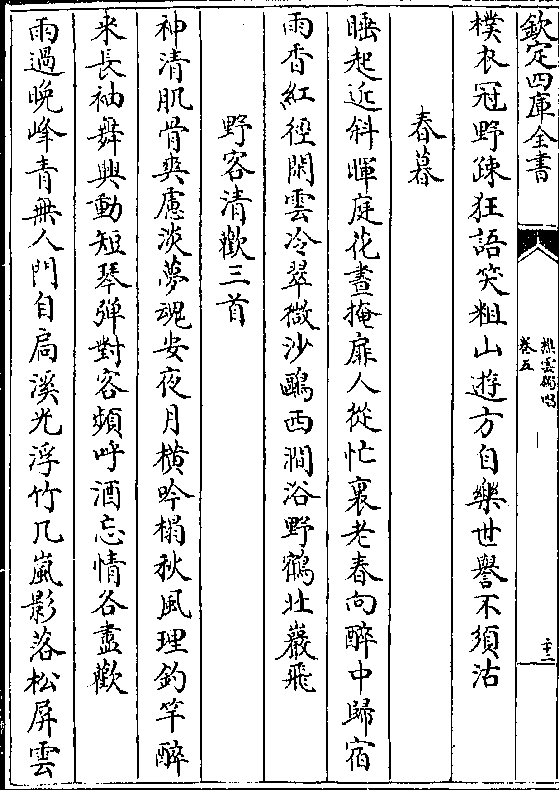 欽定四庫全書
樵雲獨唱
卷五
十二
樸衣冠野踈狂語笑粗山逰方自樂世譽不須沽
春暮
睡起近斜暉庭花晝掩扉人從忙裏老春向醉中歸宿
雨香紅徑閑雲冷翠微沙鷗西澗浴野鶴北巖飛
野客清歡三首
神清肌骨爽慮淡夢魂安夜月横吟榻秋風理釣竿醉
来長袖舞興動短琴弹對客頻呼酒忘情各盡歡
雨過晚峰青無人門自扃溪光浮竹几嵐影落松屏雲